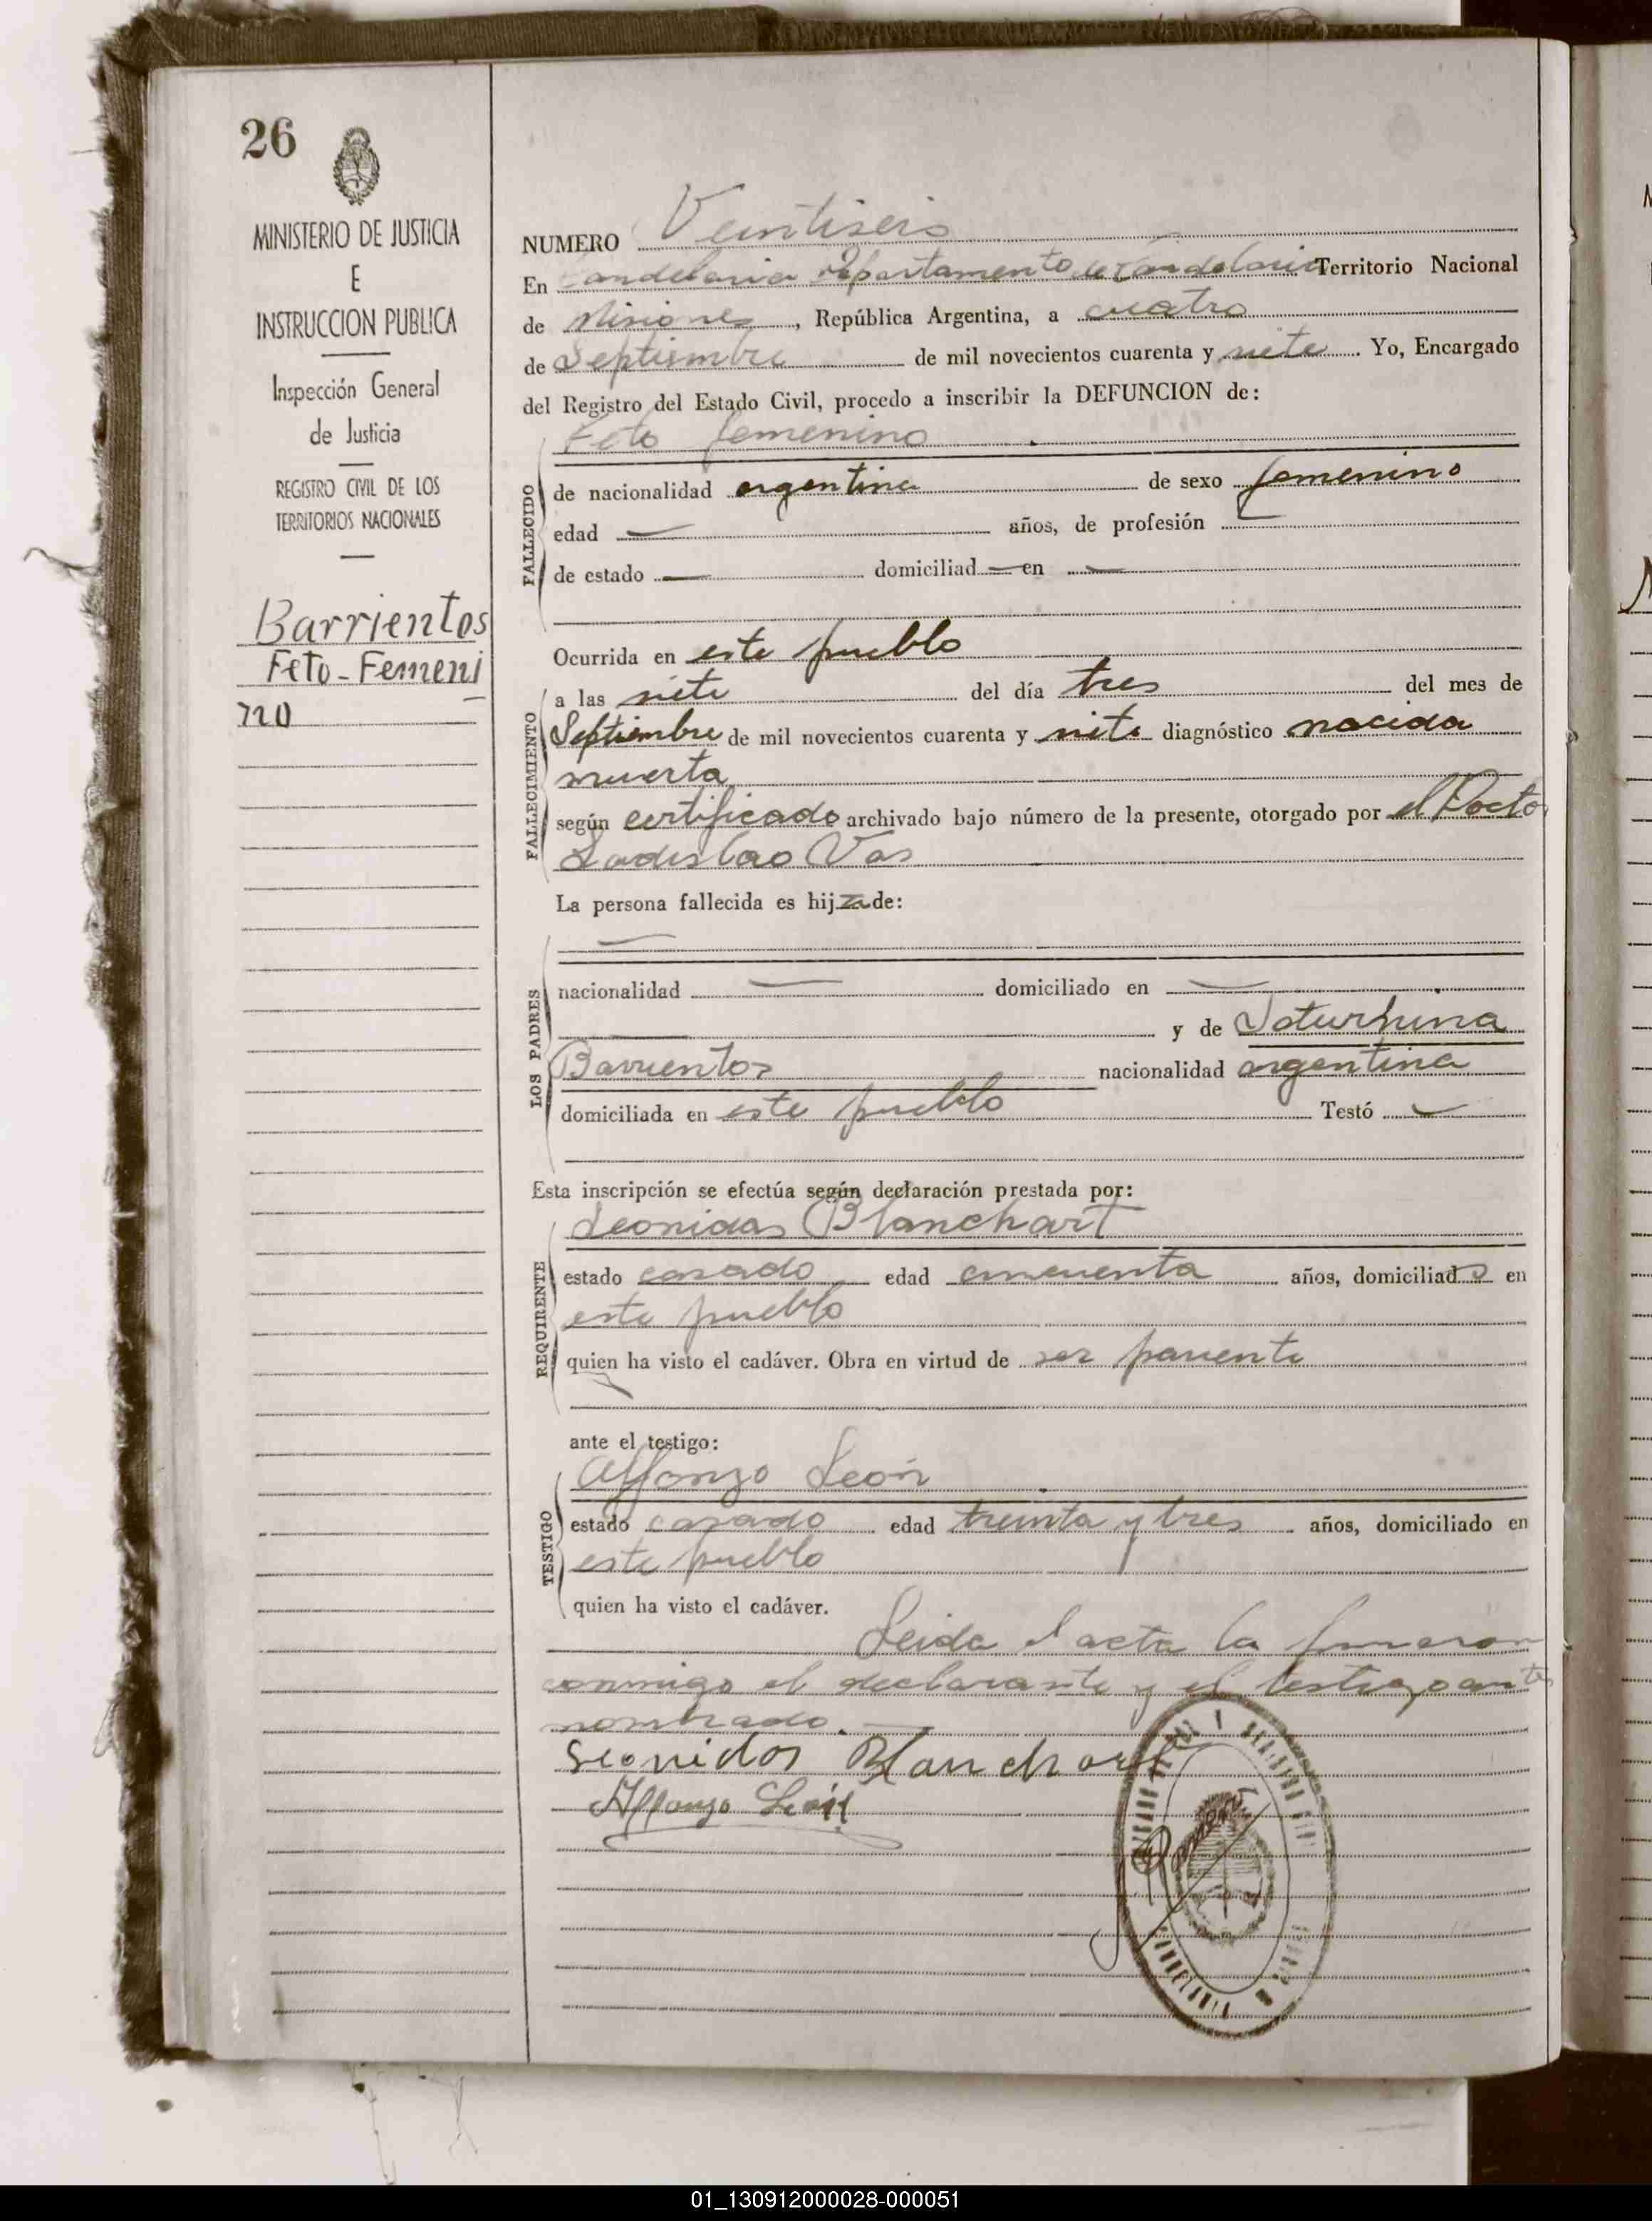 26
MINISTERIO DE JUSTICIA
E
INSTRUCCION PUBLICA
Inspección General
de Justicia
REGISTRO CIVIL DE LOS
TERRITORIOS NACIONALES
Barrientos
Feto-Femeni
no
NUMERO Veintiseis
En Candelaria Departamento de Candelaria Territorio Nacional
de Misiones, República Argentina, a cuatro
de Septiembre de mil novecientos cuarenta y siete. Yo, Encargado
del Registro del Estado Civil, procedo a inscribir la DEFUNCION de:
Feto femenino
FALLECIDO
de nacionalidad argentina de sexo femenino
edad — años, de profesión —
de estado — domiciliad — en —
Ocurrida en este pueblo
FALLECIMIENTO
a las siete del día tres del mes de
Septiembre de mil novecientos cuarenta y siete diagnóstico nacida
muerta
según certificado archivado bajo número de la presente, otorgado por el Doctor
Ladislao Vas
La persona fallecida es hija de:
LOS PADRES
—
nacionalidad — domiciliado en —
— y de Saturnina
Barrientos nacionalidad argentina
domiciliada en este pueblo Testó —
Esta inscripción se efectúa según declaración prestada por:
REQUIRENTE
Leonidas Blanchart
estado casado edad cincuenta años, domiciliado en
este pueblo
quien ha visto el cadáver. Obra en virtud de ser pariente
ante el testigo:
TESTIGO
Alfonzo León
estado casado edad treinta y tres años, domiciliado en
este pueblo
quien ha visto el cadáver.
Leida el acta la firmaron
conmigo el declarante y el testigo antes
nombrado.
Leonidas Blanchart
Alfonzo León
01_130912000028-000051